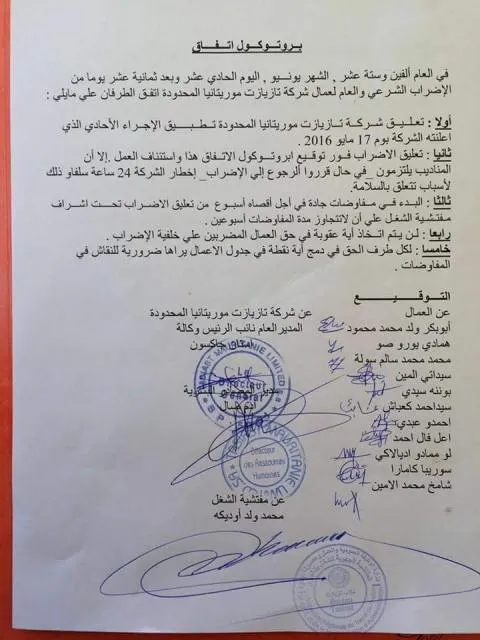 بروتوكول اتفاق
في العام ألفين وستة عشر , الشهر يونيو , اليوم الحادي عشر وبعد ثمانية عشر يوما من
الإضراب الشرعي والعام لعمال شركة تازيازت موريتانيا المحدودة اتفق الطرفان علي مايلي :
أولا : تعليق شركة تازيازت موريتانيا المحدودة تطبيق الإجراء الأحادي الذي
اعلنته الشركة يوم 17 مايو 2016 .
ثانيا : تعليق الاضراب فور توقيع ابروتوكول الاتفاق هذا واستئناف العمل .إلا أن
المناديب يلتزمون _في حال قرروا الرجوع إلي الإضراب_ إخطار الشركة 24 ساعة سلفاو ذلك
لأسباب تتعلق بالسلامة.
ثالثا : البدء في مفاوضات جادة في أجل أقصاه أسبوع من تعليق الإضراب تحت اشراف
مفتشية الشغل علي أن لاتتجاوز مدة المفاوضات أسبوعين .
رابعا : لن يتم اتخاذ أية عقوبة في حق العمال المضربين علي خلفية الإضراب .
خامسا : لكل طرف الحق في دمج أية نقطة في جدول الاعمال يراها ضرورية للنقاش في
المفاوضات .
التوقيع
عن العمال
أبوبكر ولد محمد محمود
همادي يورو صو
محمد محمد سالم سولة
سيداتي المين
بوننه سيدي
سيداحمد كعباش
احمدو عبدي
اعل فال احمد
لو ممادو اديالاكي
سوريبا كامارا
شامخ محمد الامين
عن شركة تازيازت موريتانيا المحدودة
المدير العام نائب الرئيس وكالة
جاكسون
Directeur
General
Directeur
des Ressources
Humaines
عن مفتشية الشغل
محمد ولد أوديكه